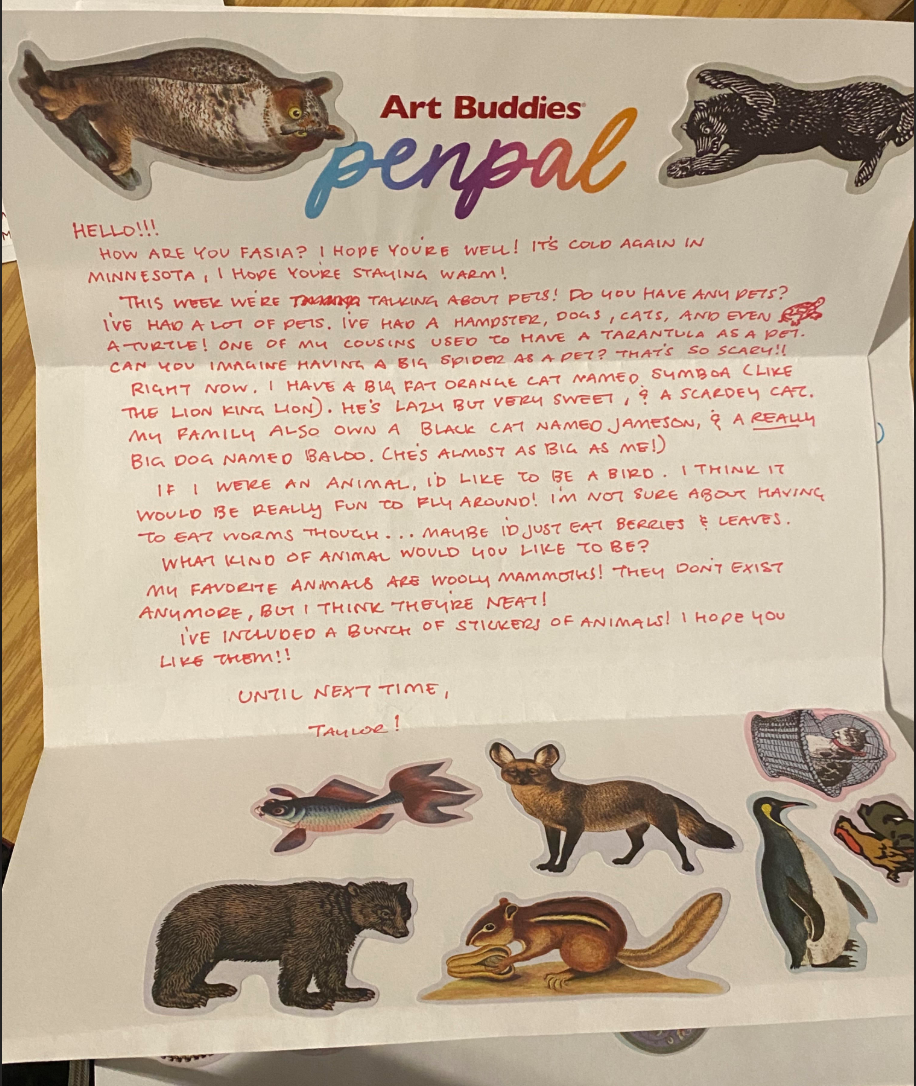 Art Buddies
penpal
HELLO!!!
HOW ARE YOU FASIA? I HOPE YOU'RE WELL! IT'S COLD AGAIN IN
MINNESOTA, I HOPE YOU'RE STAYING WARM!
THIS WEEK WE'RE TALKING ABOUT PETS! DO YOU HAVE ANY PETS?
I'VE HAD A LOT OF PETS. I'VE HAD A HAMPSTER, DOGS, CATS, AND EVEN
A TURTLE! ONE OF MY COUSINS USED TO HAVE A TARANTULA AS A PET.
CAN YOU IMAGINE HAVING A BIG SPIDER AS A PET? THAT'S SO SCARY!!
RIGHT NOW. I HAVE A BIG FAT ORANGE CAT NAMED SYMBOA (LIKE
THE LION KING LION). HE'S LAZY BUT VERY SWEET, & A SCARDEY CAT.
MY FAMILY ALSO OWN A BLACK CAT NAMED JAMESON, & A REALLY
BIG DOG NAMED BALOO. (HE'S ALMOST AS BIG AS ME!)
IF I WERE AN ANIMAL, I'D LIKE TO BE A BIRD. I THINK IT
WOULD BE REALLY FUN TO FLY AROUND! I'M NOT SURE ABOUT HAVING
TO EAT WORMS THOUGH... MAYBE I'D JUST EAT BERRIES & LEAVES.
WHAT KIND OF ANIMAL WOULD YOU LIKE TO BE?
MY FAVORITE ANIMALS ARE WOOLY MAMMOTHS! THEY DON'T EXIST
ANYMORE, BUT I THINK THEY'RE NEAT!
I'VE INCLUDED A BUNCH OF STICKERS OF ANIMALS! I HOPE YOU
LIKE THEM!!
UNTIL NEXT TIME,
TAYLOR!